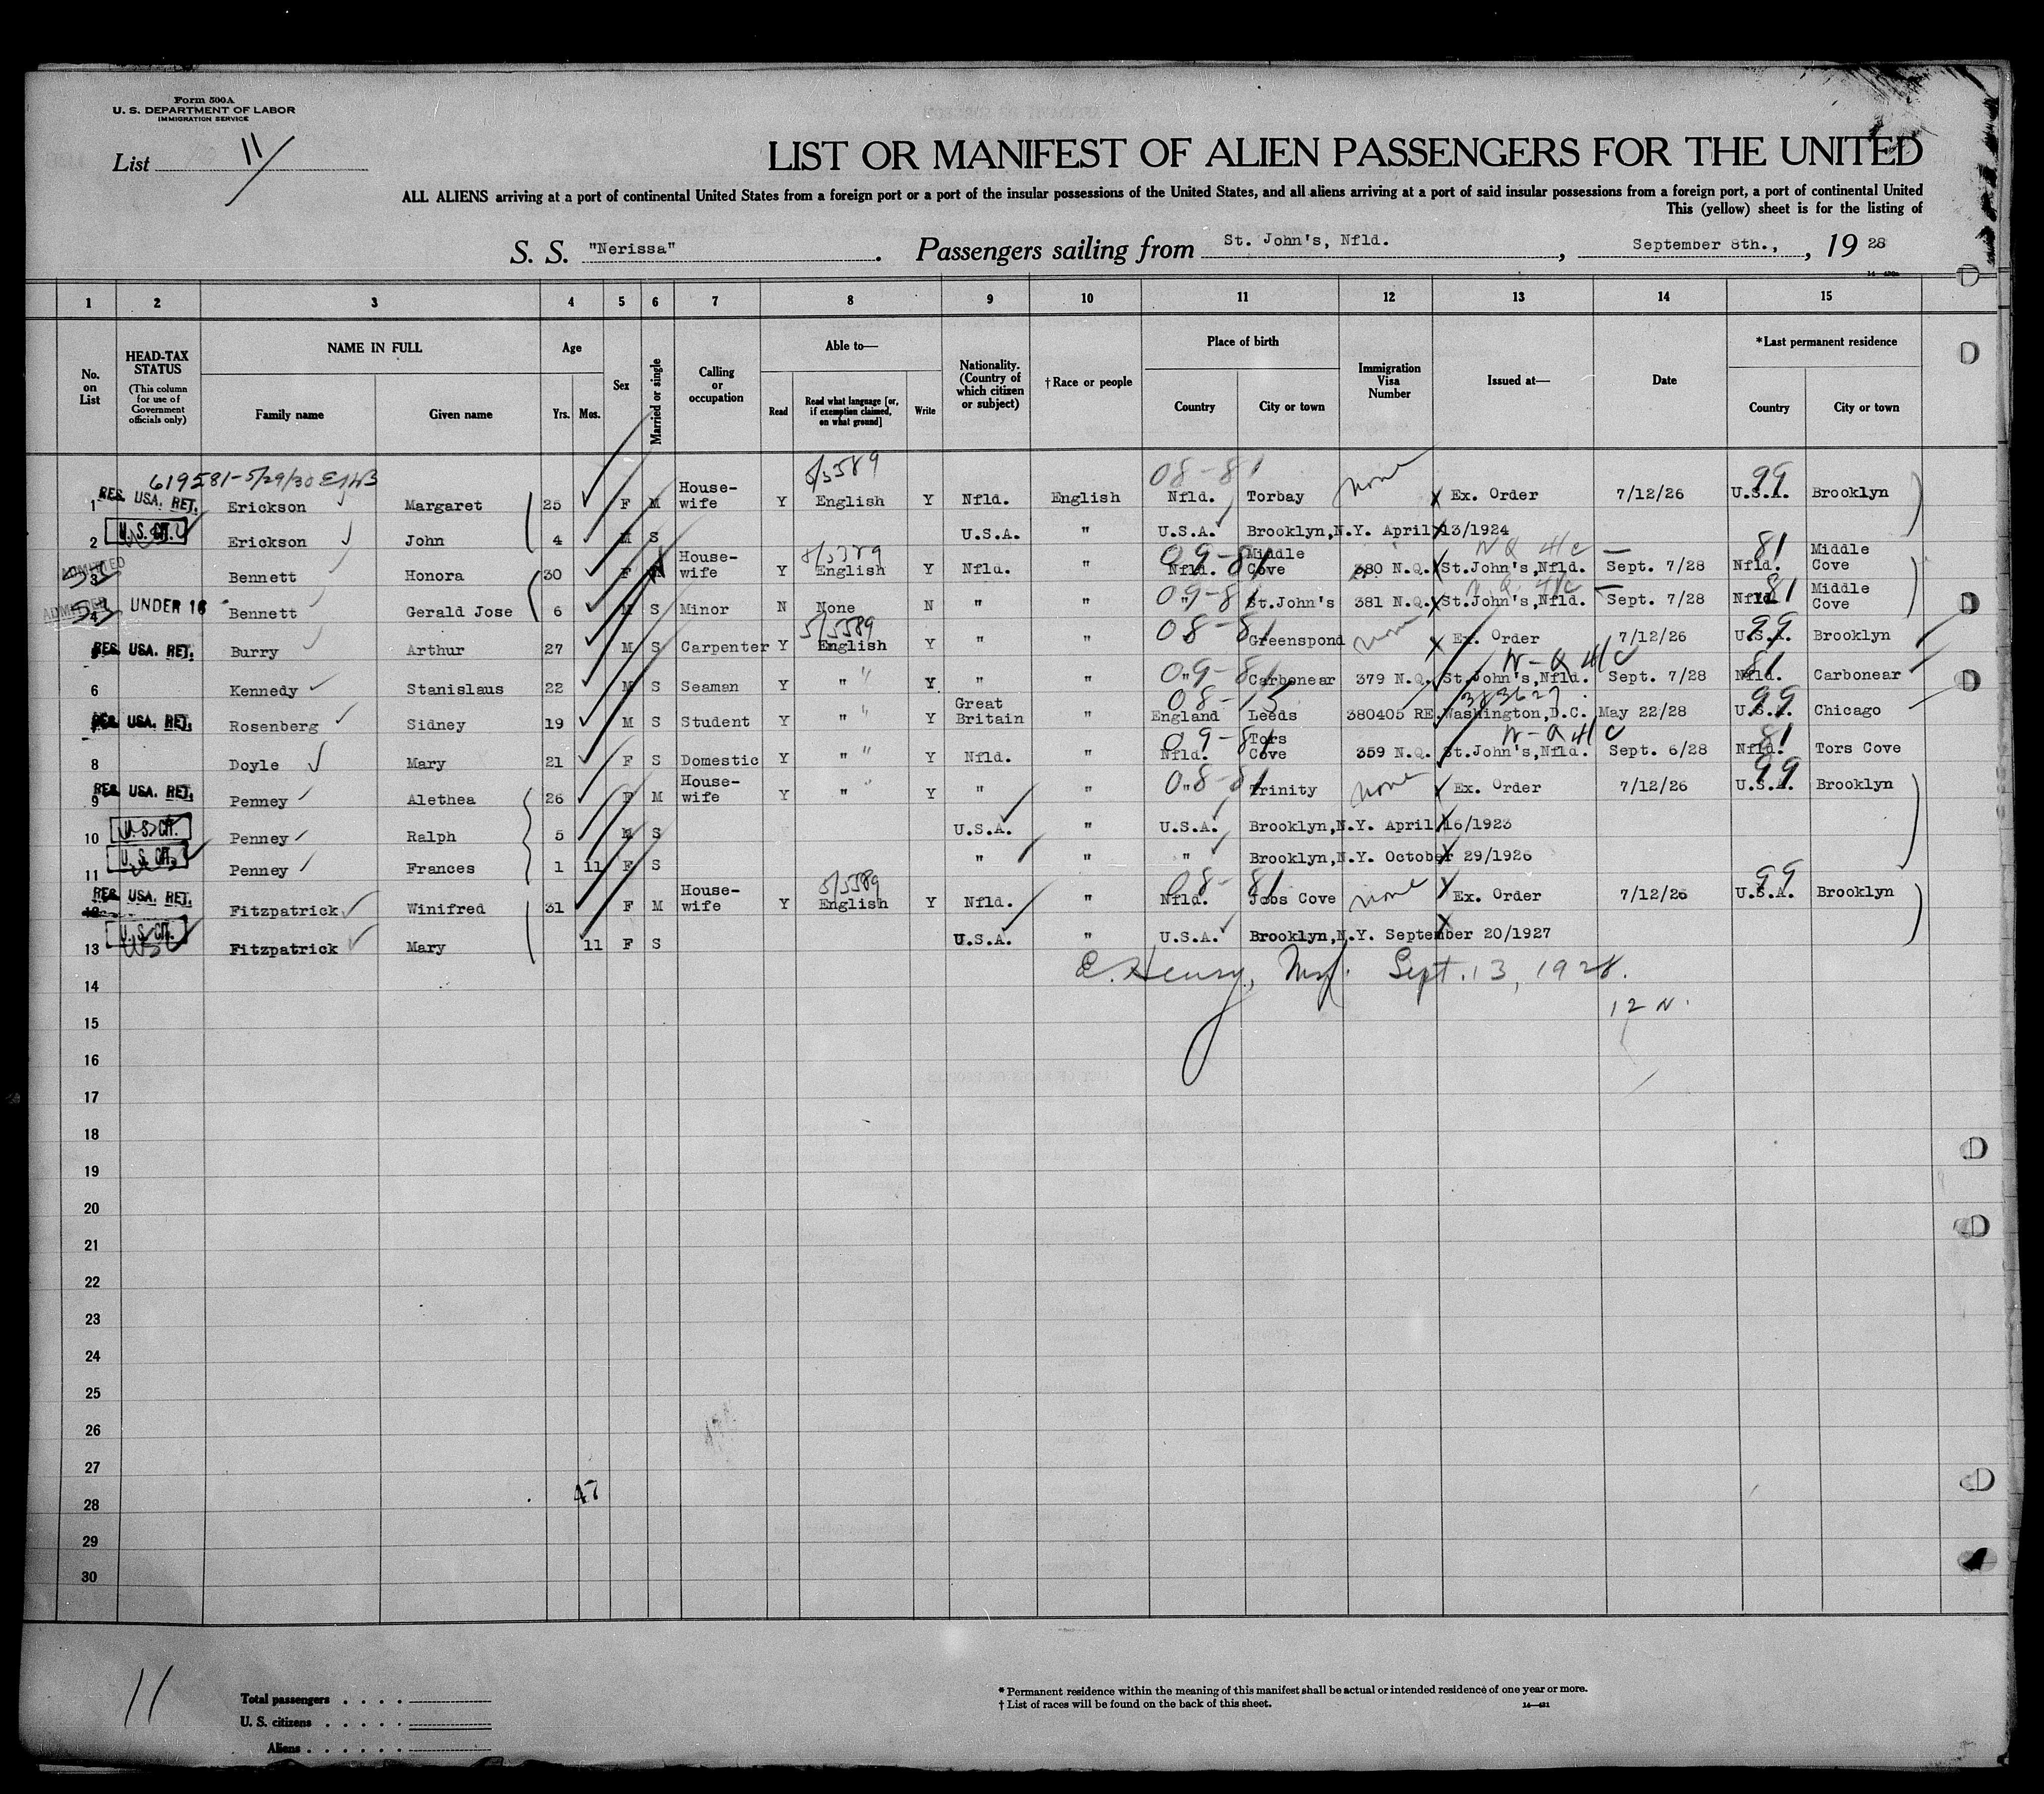 Form 500A
U. S. DEPARTMENT OF LABOR
IMMIGRATION SERVICE
List 11
LIST OR MANIFEST OF ALIEN PASSENGERS FOR THE UNITED
ALL ALIENS arriving at a port of continental United States from a foreign port or a port of the insular possessions of the United States, and all aliens arriving at a port of said insular possessions from a foreign port, a port of continental United
This (yellow) sheet is for the listing of
S. S. "Nerissa". Passengers sailing from St. John's, Nfld., September 8th., , 19 28
1 2 3 4 5 6 7 8 9 10 11 12 13 14 15
No. on List
HEAD-TAX STATUS
(This column for use of Government officials only)
NAME IN FULL
Family name
Given name
Age
Yrs. Mos.
Sex
Married or single
Calling or occupation
Able to—
Read
Read what language [or, if exemption claimed, on what ground]
Write
Nationality. (Country of which citizen or subject)
†Race or people
Place of birth
Country
City or town
Immigration Visa Number
Issued at—
Date
*Last permanent residence
Country
City or town
619581-5/29/30
1 RES. USA. RET. Erickson Margaret 25 F M House-wife Y English Y Nfld. English Nfld. Torbay none X Ex. Order 7/12/26 U.S.A. 99 Brooklyn
2 U. S. CIT. Erickson John 4 M S U.S.A. " U.S.A. Brooklyn,N.Y. April 13/1924
3 ADMITTED Bennett Honora 30 F House-wife Y English Y Nfld. " Nfld. 09-81 Middle Cove 380 N.Q. St.John's,Nfld. Sept. 7/28 Nfld. 81 Middle Cove
4 ADMITTED UNDER 16 Bennett Gerald Jose 6 M S Minor N None N " " " 09-81 St.John's 381 N.Q. St.John's,Nfld. Sept. 7/28 Nfld. 81 Middle Cove
RES. USA. RET. Burry Arthur 27 M S Carpenter Y English Y " " 08-81 Greenspond none X Ex. Order 7/12/26 U.S.A. 99 Brooklyn
6 Kennedy Stanislaus 22 M S Seaman Y " Y " " " 09-81 Carbonear 379 N.Q. St.John's,Nfld. Sept. 7/28 Nfld. 81 Carbonear
RES. USA. RET. Rosenberg Sidney 19 M S Student Y " Y Great Britain " England Leeds 380405 RE. Washington,D.C. May 22/28 U.S.A. 99 Chicago
8 Doyle Mary 21 F S Domestic Y " Y Nfld. " Nfld. 09-81 Tors Cove 359 N.Q. St.John's,Nfld. Sept. 6/28 Nfld. 81 Tors Cove
9 RES. USA. RET. Penney Alethea 26 F M House-wife Y " Y " " " 08-81 Trinity none Ex. Order 7/12/26 U.S.A. 99 Brooklyn
10 U. S. CIT. Penney Ralph 5 M S U.S.A. " U.S.A. Brooklyn,N.Y. April 16/1923
11 U. S. CIT. Penney Frances 1 11 F S " " " Brooklyn,N.Y. October 29/1926
12 RES. USA. RET. Fitzpatrick Winifred 31 F M House-wife Y English Y Nfld. " Nfld. 08-81 Jobs Cove none Ex. Order 7/12/26 U.S.A. 99 Brooklyn
13 U. S. CIT. Fitzpatrick Mary 11 F S U.S.A. " U.S.A. Brooklyn,N.Y. September 20/1927
E. Henry, Sept. 13, 1928.
14
12 N.
15
16
17
18
19
20
21
22
23
24
25
26
27
47
28
29
30
11
Total passengers . . . .
U. S. citizens . . . . .
Aliens . . . . . .
* Permanent residence within the meaning of this manifest shall be actual or intended residence of one year or more.
† List of races will be found on the back of this sheet.